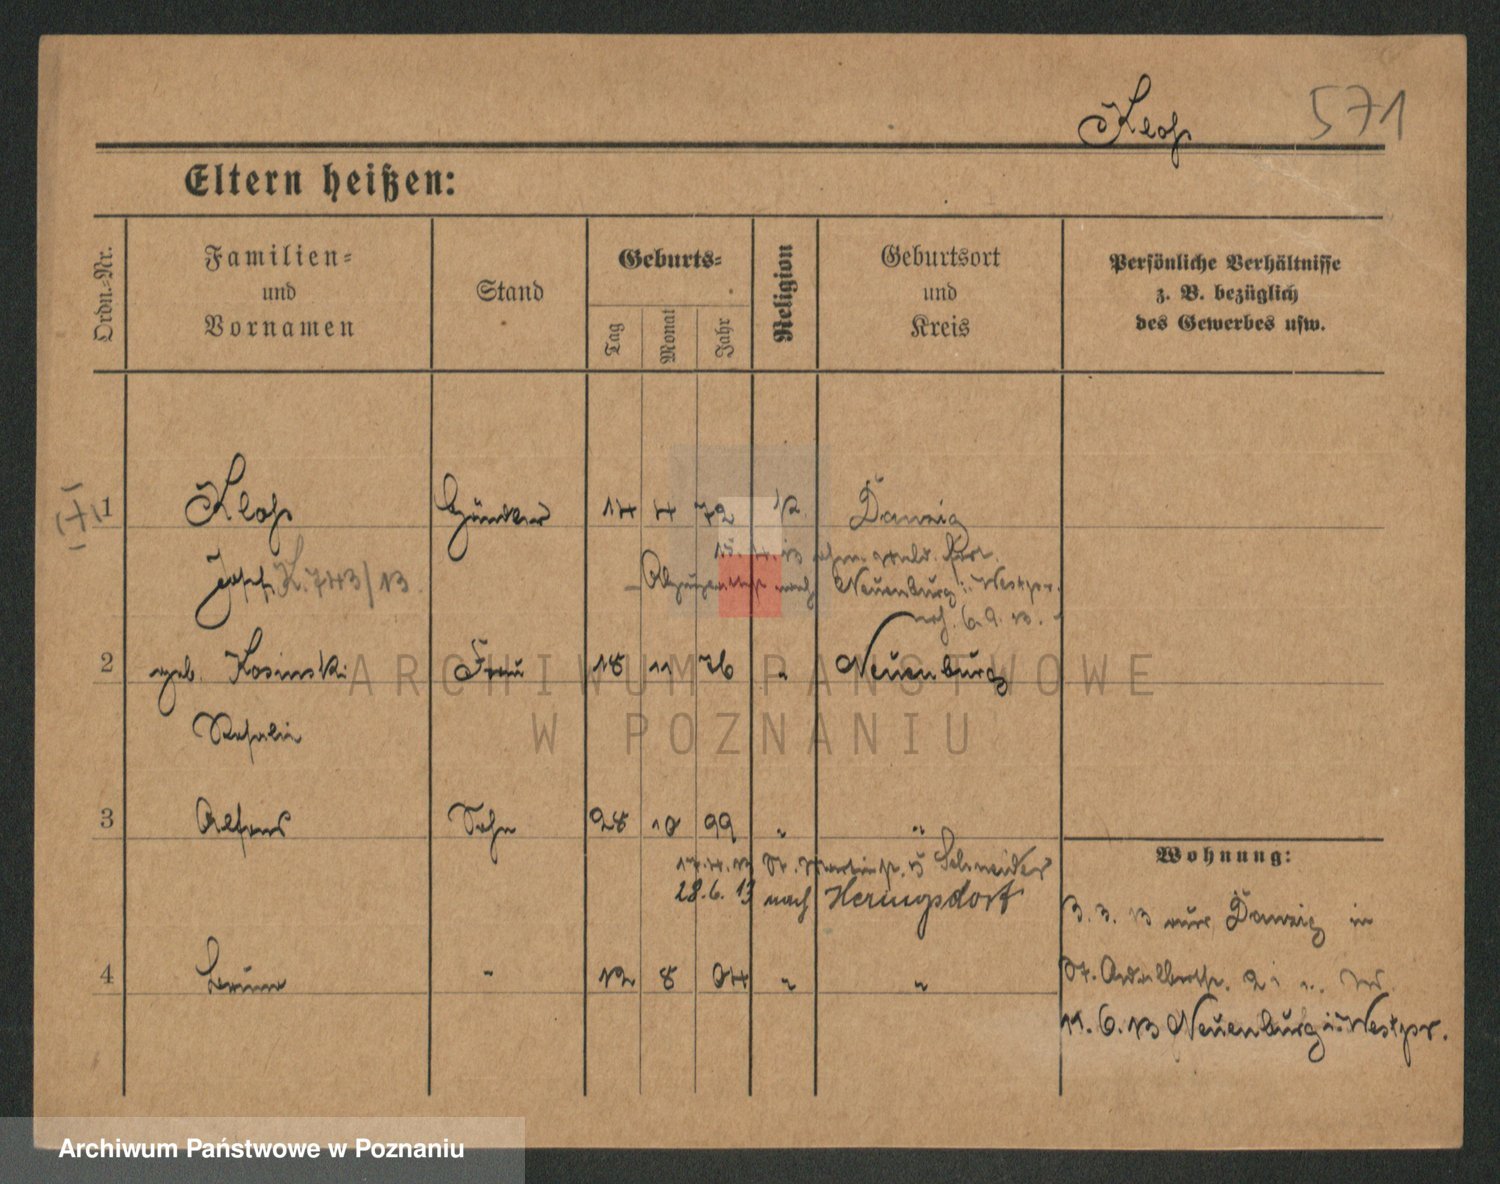 Kloß 571
Eltern heißen:
Ordn.-Nr.
Familien-
und
Vornamen
Stand
Geburts-
Tag
Monat
Jahr
Religion
Geburtsort
und
Kreis
Persönliche Verhältnisse
z. B. bezüglich
des Gewerbes usw.
1 Kloß 14 4 72 Danzig
Josef K. 743/13
nach Neuenburg i. Westpr.
6. 9. 13.
2 geb. Kosinski Frau 18 11 76 " Neuenburg
Rosalie
3 Alfons Sohn 28 10 99 " "
St. Martinstr. Schneider
28.6.13 nach Heringsdorf
4 Bruno " 12 8 04 " "
Wohnung:
3. 3. 13 aus Danzig in
St. Adalbertstr. 2
11. 6. 13 Neuenburg i. Westpr.
ARCHIWUM PAŃSTWOWE
W POZNANIU
Archiwum Państwowe w Poznaniu